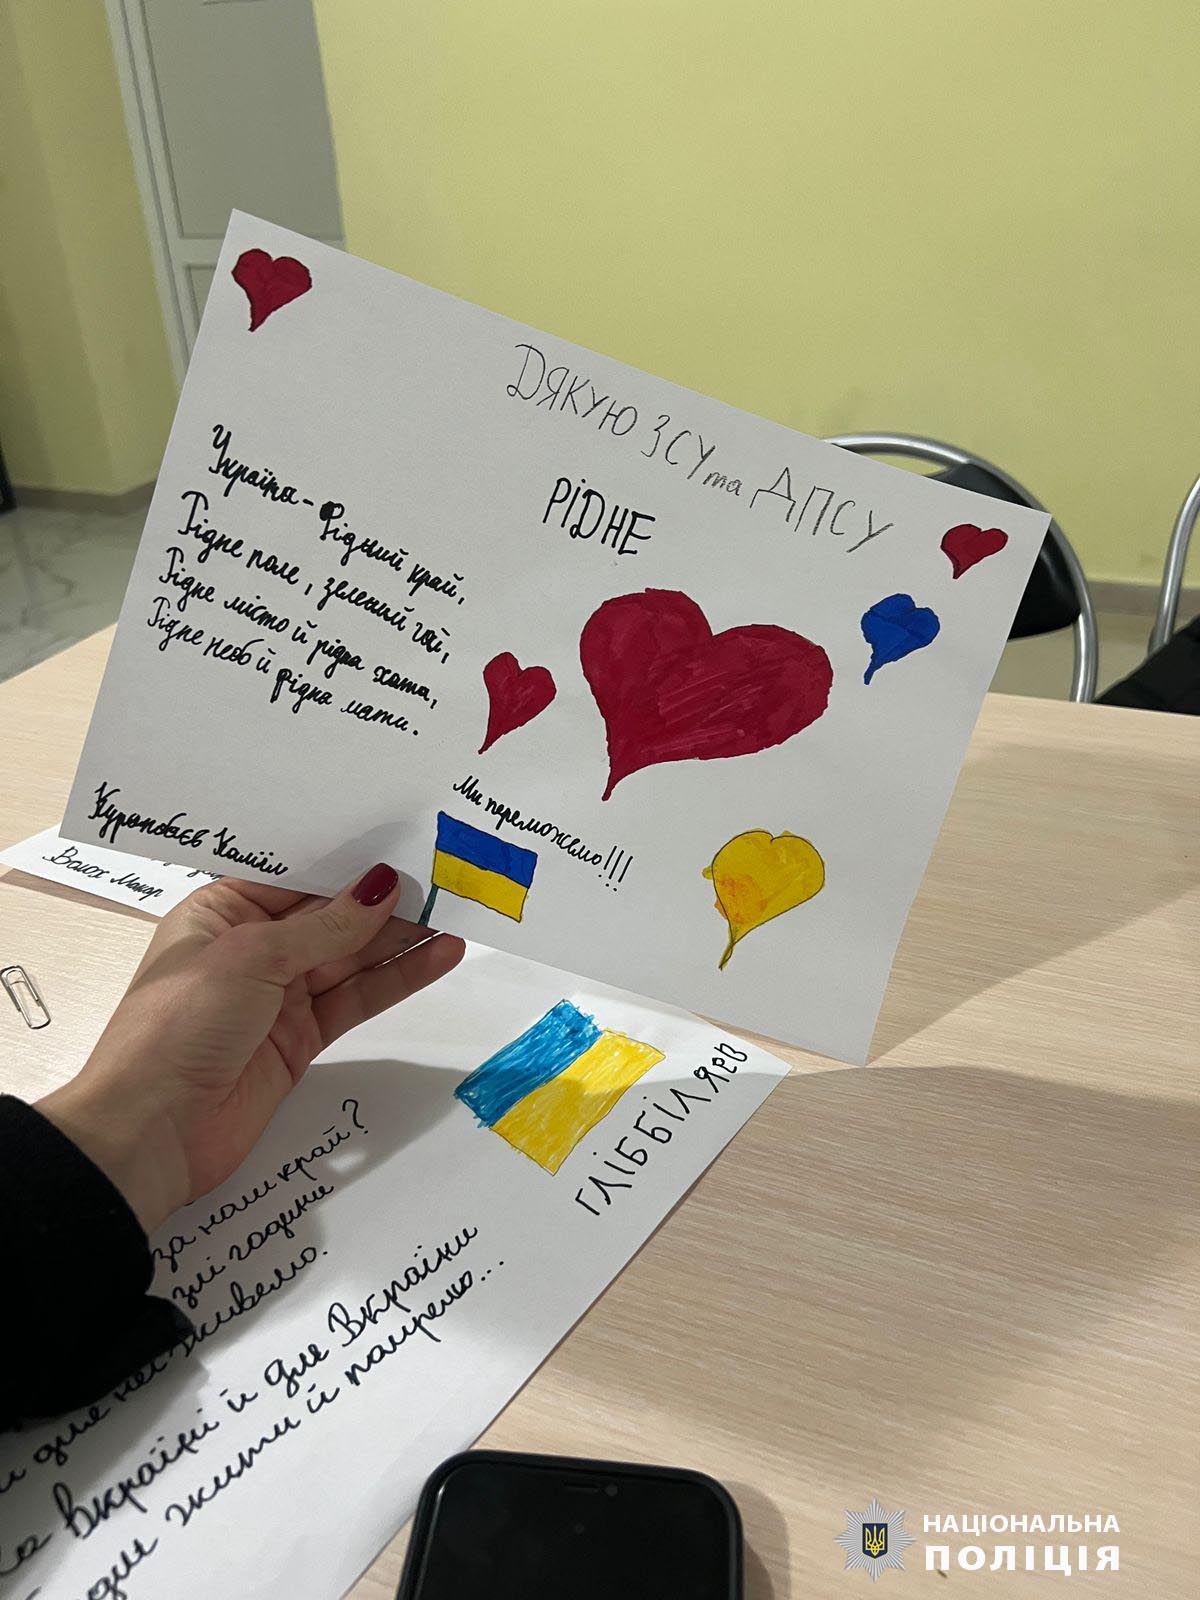 ДЯКУЮ ЗСУ та ДПСУ
РІДНЕ
Україна - Рідний край,
Рідне поле, зелений гай,
Рідне місто й рідна хата,
Рідне небо й рідна мати.
Ми переможемо!!!
Камііл
Волох Макар
ГЛІБ БІЛЯЄВ
за наш край?
злі години
для неї живемо.
Вкраїні й для Вкраїни
жити й помремо...
НАЦІОНАЛЬНА
ПОЛІЦІЯ